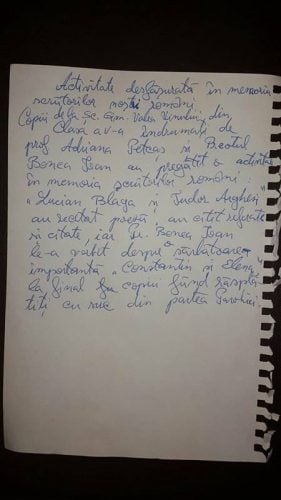 Activitate desfășurată în memoria
scriitorilor noștri români
Copiii de la Șc. Gim. Valea Vinului, din
Clasa a V-a îndrumați de
prof Adriana Petcaș și Preotul
Bonea Ioan au pregătit o activitate
în memoria scriitorilor români:
"Lucian Blaga și Tudor Arghezi"
au recitat poezii, au citit referate
și citate, iar Pr. Bonea Ioan
le-a vorbit despre sărbătoarea
importantă „Constantin și Elena"
la final copiii fiind răsplă-
tiți cu suc din partea Parohiei